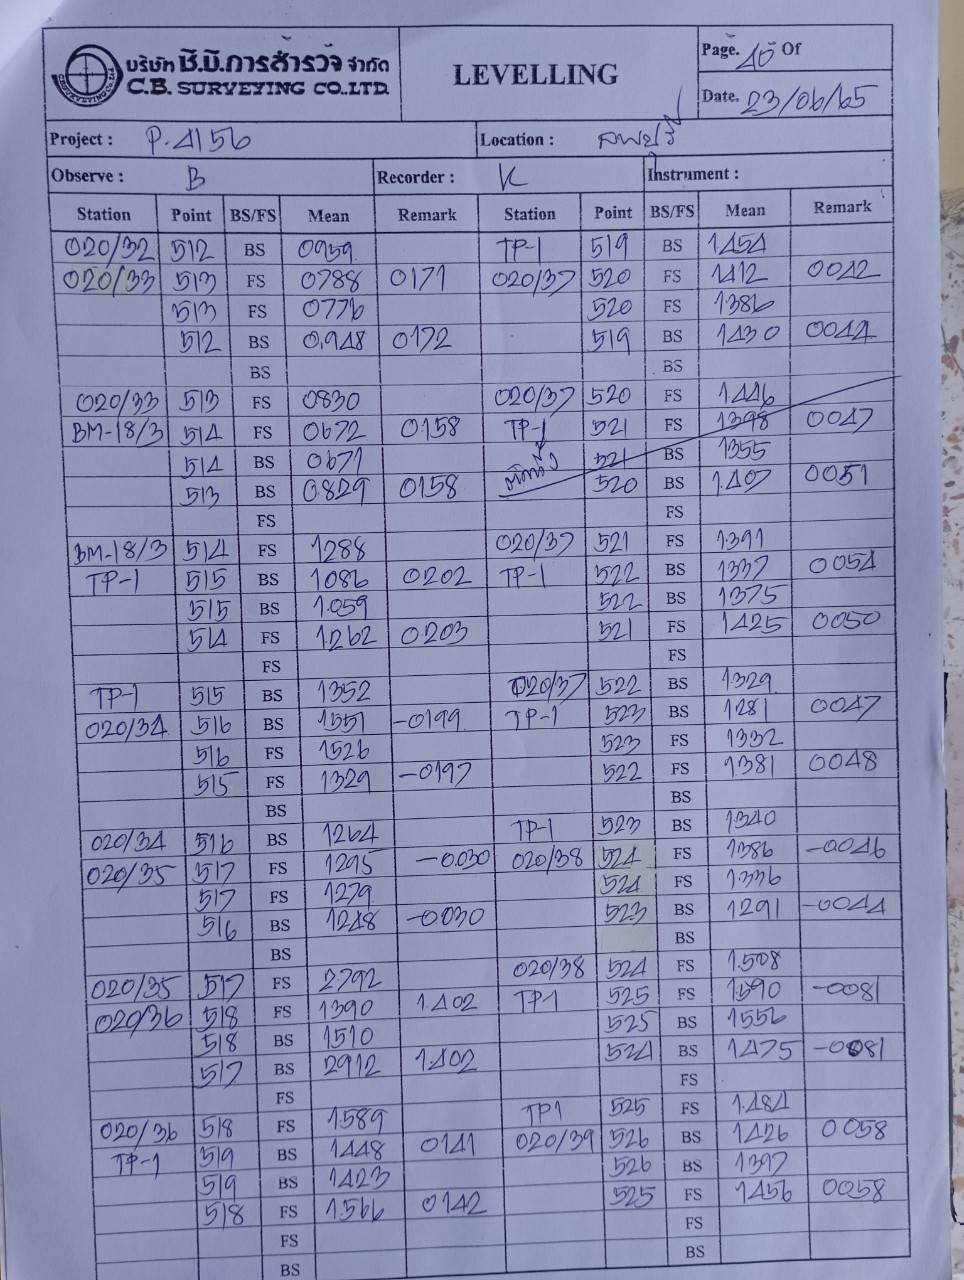 บริษัท ซี.บี.การสำรวจ จำกัด
C.B. SURVEYING CO..LTD.
LEVELLING
Page. 40 Of
Date. 23/06/65
Project : P.4156
Location : ลพบุรี
Observe : B
Recorder : K
Instrument :
Station Point BS/FS Mean Remark Station Point BS/FS Mean Remark
020/32 512 BS 0959 TP-1 519 BS 1454
020/33 513 FS 0788 0171 020/37 520 FS 1412 0042
513 FS 0776 520 FS 1386
512 BS 0948 0172 519 BS 1430 0044
BS BS
020/33 513 FS 0830 020/37 520 FS 1446
BM-18/3 514 FS 0672 0158 TP-1 521 FS 1398 0047
514 BS 0671 521 BS 1355
513 BS 0829 0158 520 BS 1407 0051
FS FS
BM-18/3 514 FS 1288 020/37 521 FS 1391
TP-1 515 BS 1086 0202 TP-1 522 BS 1337 0054
515 BS 1059 522 BS 1375
514 FS 1262 0203 521 FS 1425 0050
FS FS
TP-1 515 BS 1352 020/37 522 BS 1329
020/34 516 BS 1551 -0199 TP-1 523 BS 1281 0047
516 FS 1526 523 FS 1332
515 FS 1329 -0197 522 FS 1381 0048
BS BS
020/34 516 BS 1264 TP-1 523 BS 1340
020/35 517 FS 1295 -0030 020/38 524 FS 1386 -0046
517 FS 1279 524 FS 1336
516 BS 1248 -0030 523 BS 1291 -0044
BS BS
020/35 517 FS 2792 020/38 524 FS 1508
020/36 518 FS 1390 1402 TP1 525 FS 1590 -0081
518 BS 1510 525 BS 1556
517 BS 2912 1402 524 BS 1475 -0081
FS FS
020/36 518 FS 1589 TP1 525 FS 1484
TP-1 519 BS 1448 0141 020/39 526 BS 1426 0058
519 BS 1423 526 BS 1397
518 FS 1566 0142 525 FS 1456 0058
FS FS
BS BS